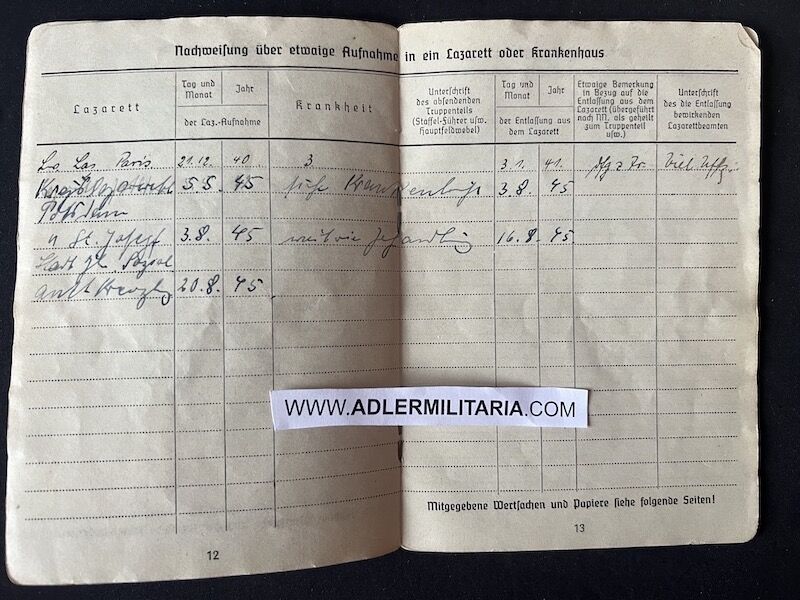 Nachweisung über etwaige Aufnahme in ein Lazarett oder Krankenhaus
Lazarett
Tag und Monat
Jahr
der Laz.-Aufnahme
Krankheit
Unterschrift
des absendenden
Truppenteils
(Staffel-Führer usw.
Hauptfeldwebel)
Tag und
Monat
Jahr
der Entlassung aus
dem Lazarett
Etwaige Bemerkung
in Bezug auf die
Entlassung aus dem
Lazarett (übergeführt
nach NN, als geheilt
zum Truppenteil
usw.)
Unterschrift
des die Entlassung
bewirkenden
Lazarettbeamten
Paris 21.12. 40. 3 3.1. 41.
5.5. 45 siehe 3.8. 45
Potsdam
St. Josef 3.8. 45 16.8. 45
20.8. 45
WWW.ADLERMILITARIA.COM
Mitgegebene Wertsachen und Papiere siehe folgende Seiten!
12
13